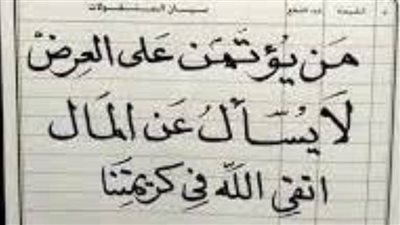 بيان المنقولات
مَن يُؤتَمَن عَلى العِرض
لَا يُسَألُ عَن المَال
اتقي اللّه في كريمتِنَا